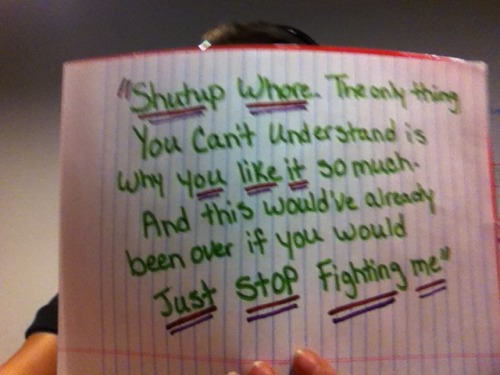 "Shutup Whore. The only thing
You Can't Understand is
Why you like it so much.
And this would've already
been over if you would
Just STOP Fighting me"